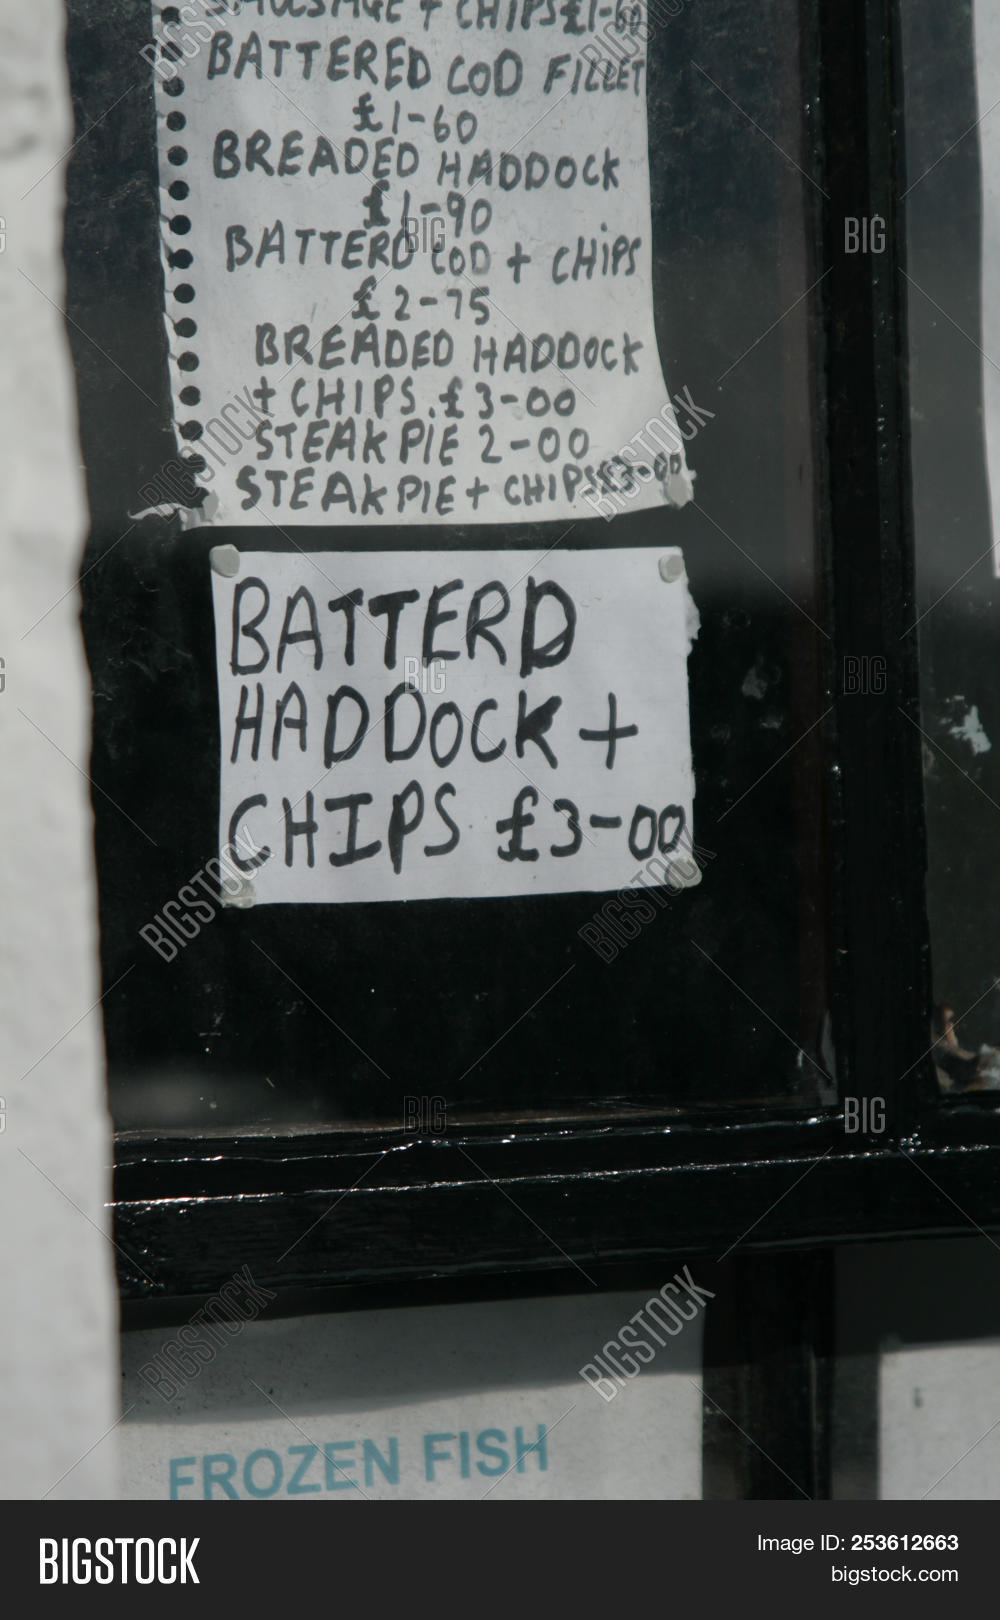 SAUCSAGE + CHIPS £1-60
BATTERED COD FILLET
£1-60
BREADED HADDOCK
£1-90
BATTERD COD + CHIPS
£2-75
BREADED HADDOCK
+ CHIPS. £3-00
STEAK PIE 2-00
STEAK PIE + CHIPS £3-00
BATTERD
HADDOCK +
CHIPS £3-00
FROZEN FISH
BIGSTOCK
Image ID: 253612663
bigstock.com